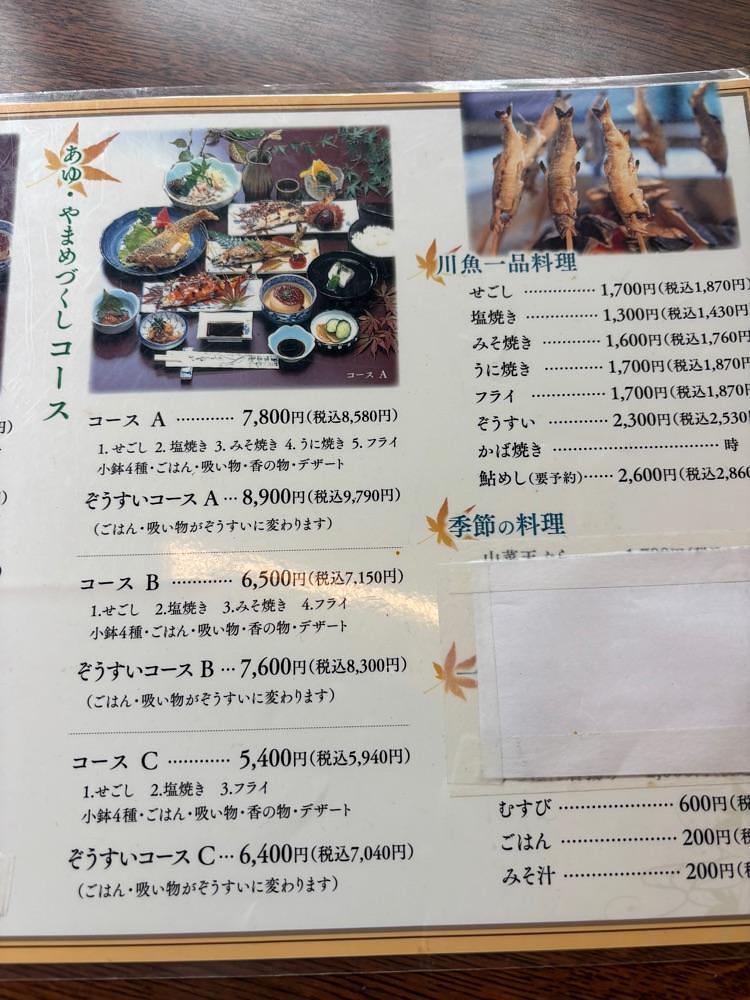 あゆ・やまめづくしコース
コース A
コース A ………… 7,800円(税込8,580円)
1. せごし 2. 塩焼き 3. みそ焼き 4. うに焼き 5. フライ
小鉢4種・ごはん・吸い物・香の物・デザート
ぞうすいコース A … 8,900円(税込9,790円)
(ごはん・吸い物がぞうすいに変わります)
コース B ………… 6,500円(税込7,150円)
1.せごし 2.塩焼き 3.みそ焼き 4.フライ
小鉢4種・ごはん・吸い物・香の物・デザート
ぞうすいコース B … 7,600円(税込8,300円)
(ごはん・吸い物がぞうすいに変わります)
コース C ………… 5,400円(税込5,940円)
1.せごし 2.塩焼き 3.フライ
小鉢4種・ごはん・吸い物・香の物・デザート
ぞうすいコース C … 6,400円(税込7,040円)
(ごはん・吸い物がぞうすいに変わります)
川魚一品料理
せごし ………… 1,700円(税込1,870円)
塩焼き ………… 1,300円(税込1,430円)
みそ焼き ………… 1,600円(税込1,760円
うに焼き ………… 1,700円(税込1,870円
フライ ………… 1,700円(税込1,870円
ぞうすい ………… 2,300円(税込2,530
かば焼き ………………………… 時
鮎めし(要予約)…… 2,600円(税込2,860
季節の料理
むすび ………………… 600円(税
ごはん ………………… 200円(税
みそ汁 ………………… 200円(税